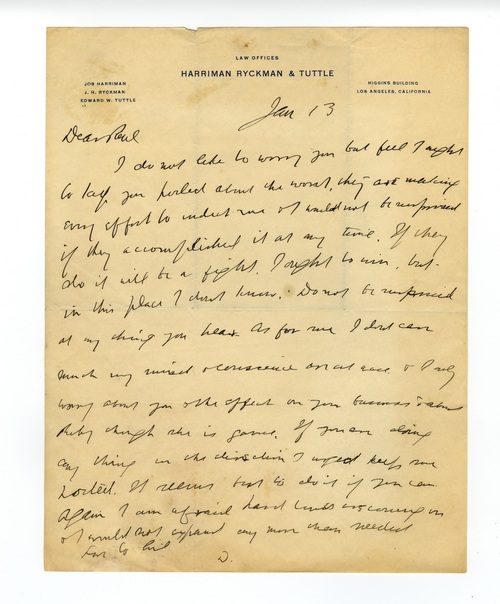 LAW OFFICES
HARRIMAN RYCKMAN & TUTTLE
JOB HARRIMAN
J. H. RYCKMAN
EDWARD W. TUTTLE
HIGGINS BUILDING
LOS ANGELES, CALIFORNIA
Jan 13
Dear Paul
I do not like to worry you but feel I ought
to keep you posted about the worst, they are making
every effort to indict me & I would not be surprised
if they accomplished it at any time. If they
do it will be a fight. I ought to win, but
in this place I don't know. Do not be surprised
at any thing you hear. As for me I don't care
much my mind & conscience are at ease & I only
worry about you & the effect on your business & about
Ruby though she is game. If you are doing
any thing in the direction I urged keep me
posted. It seems best to do it if you can
Again I am afraid hard times are coming on
& I would not expand any more than needed
D.